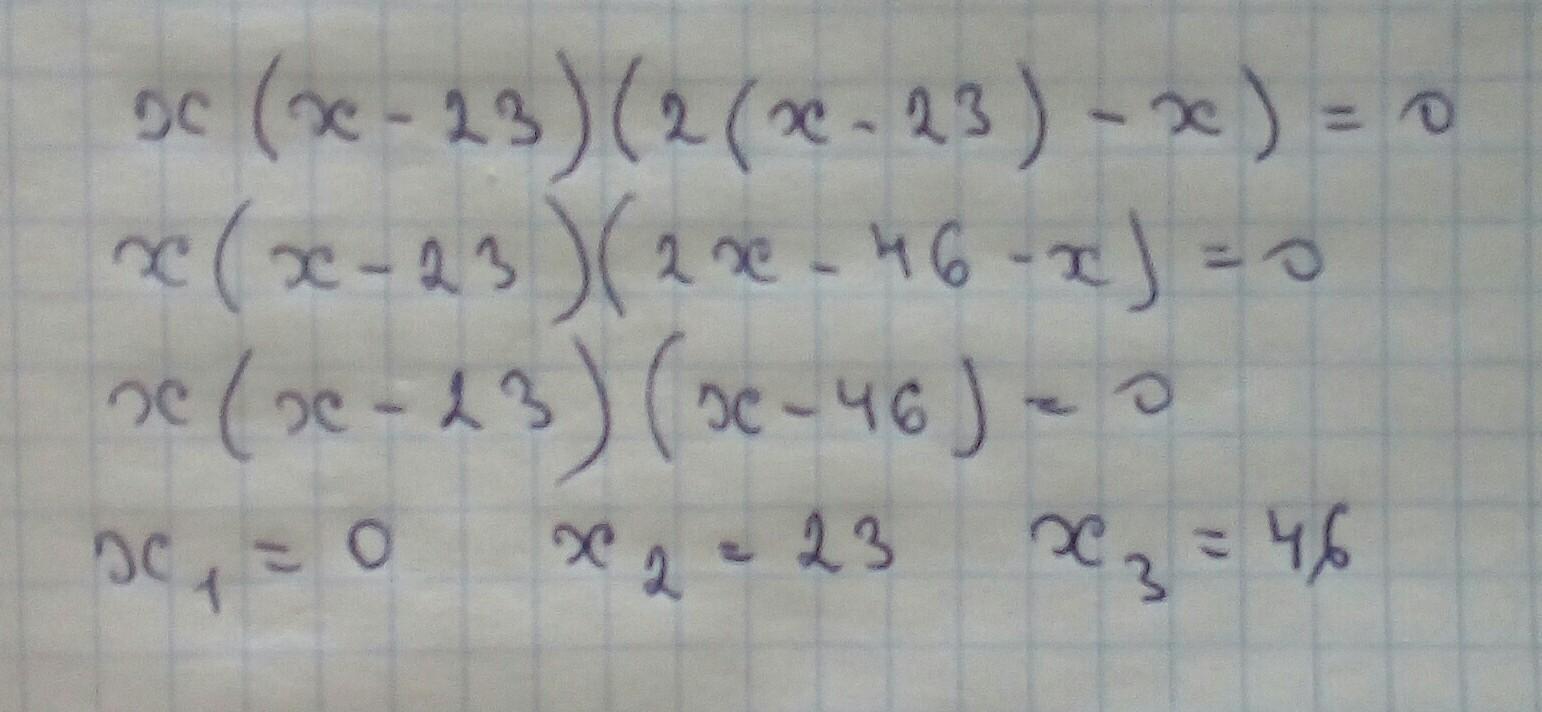 x(x-23)(2(x-23)-x)=0
x(x-23)(2x-46-x)=0
x(x-23)(x-46)=0
x₁=0 x₂=23 x₃=46